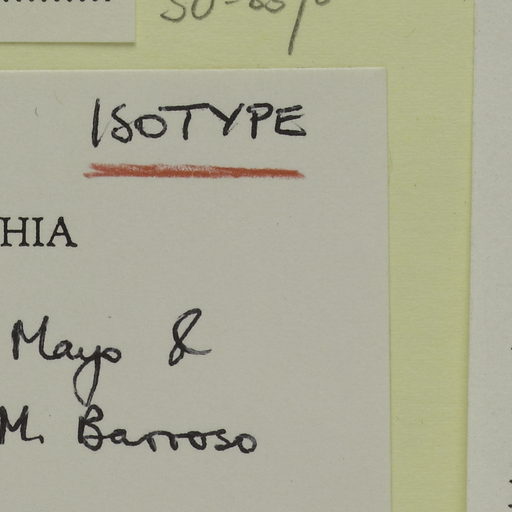 ISOTYPE
HIA
Mayo &
M. Barroso